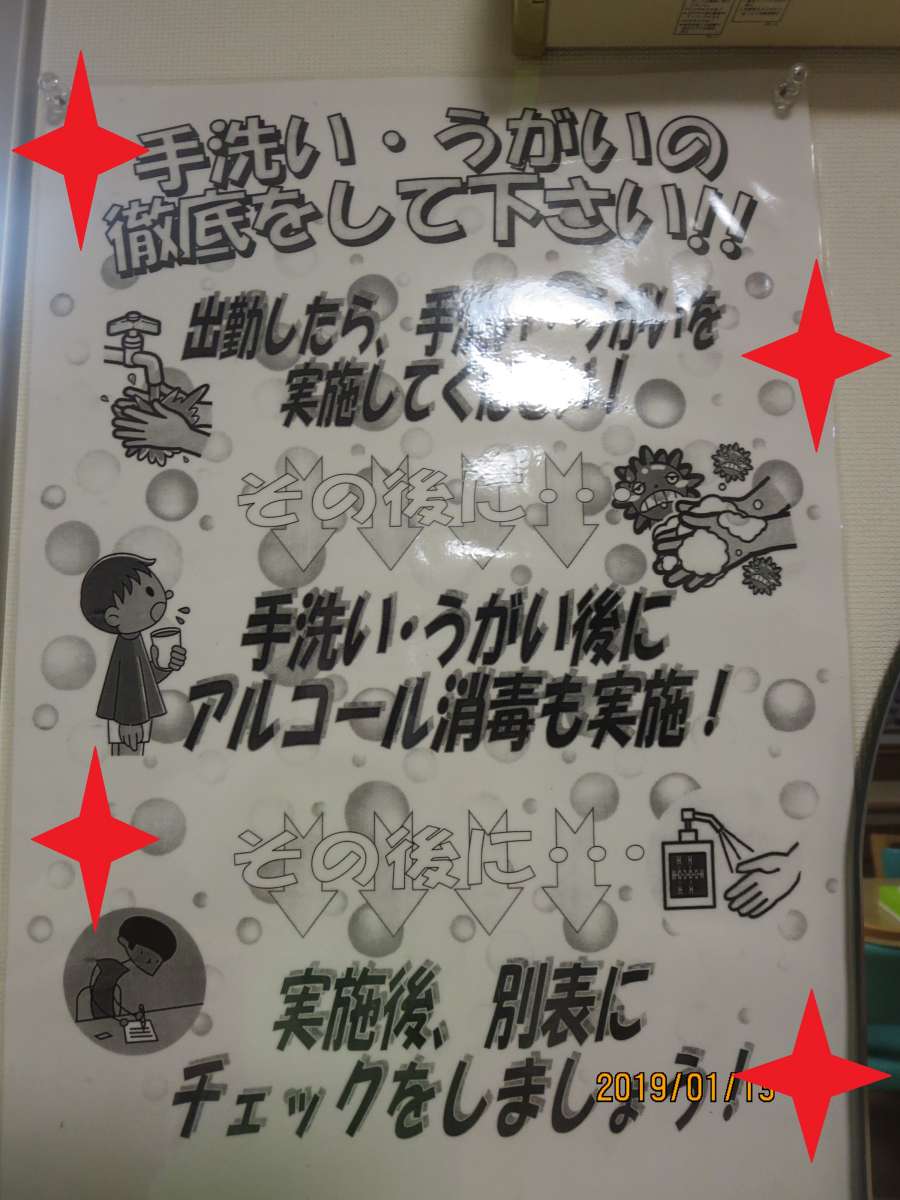 手洗い・うがいの
徹底をして下さい!!
出勤したら、手洗い・うがいを
実施してください!
その後に・・・
手洗い・うがい後に
アルコール消毒も実施!
その後に・・・
実施後、別表に
チェックをしましょう!
2019/01/15